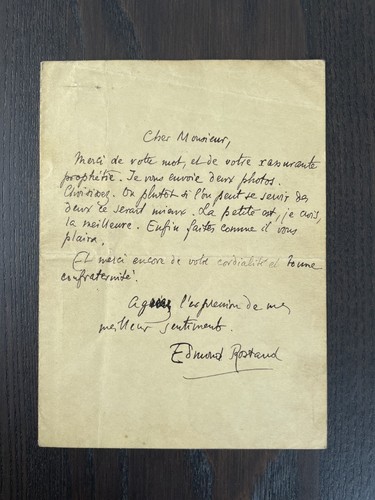 Cher Monsieur,
Merci de votre mot, et de votre rassurante
prophétie. Je vous envoie deux photos.
Choisissez. Ou plutôt si l'on peut se servir des
deux ce serait mieux. La petite est, je crois,
la meilleure. Enfin faites comme il vous
plaira.
Et merci encore de votre cordialité et bonne
confraternité.
Agréez l'expression de mes
meilleurs sentiments.
Edmond Rostand